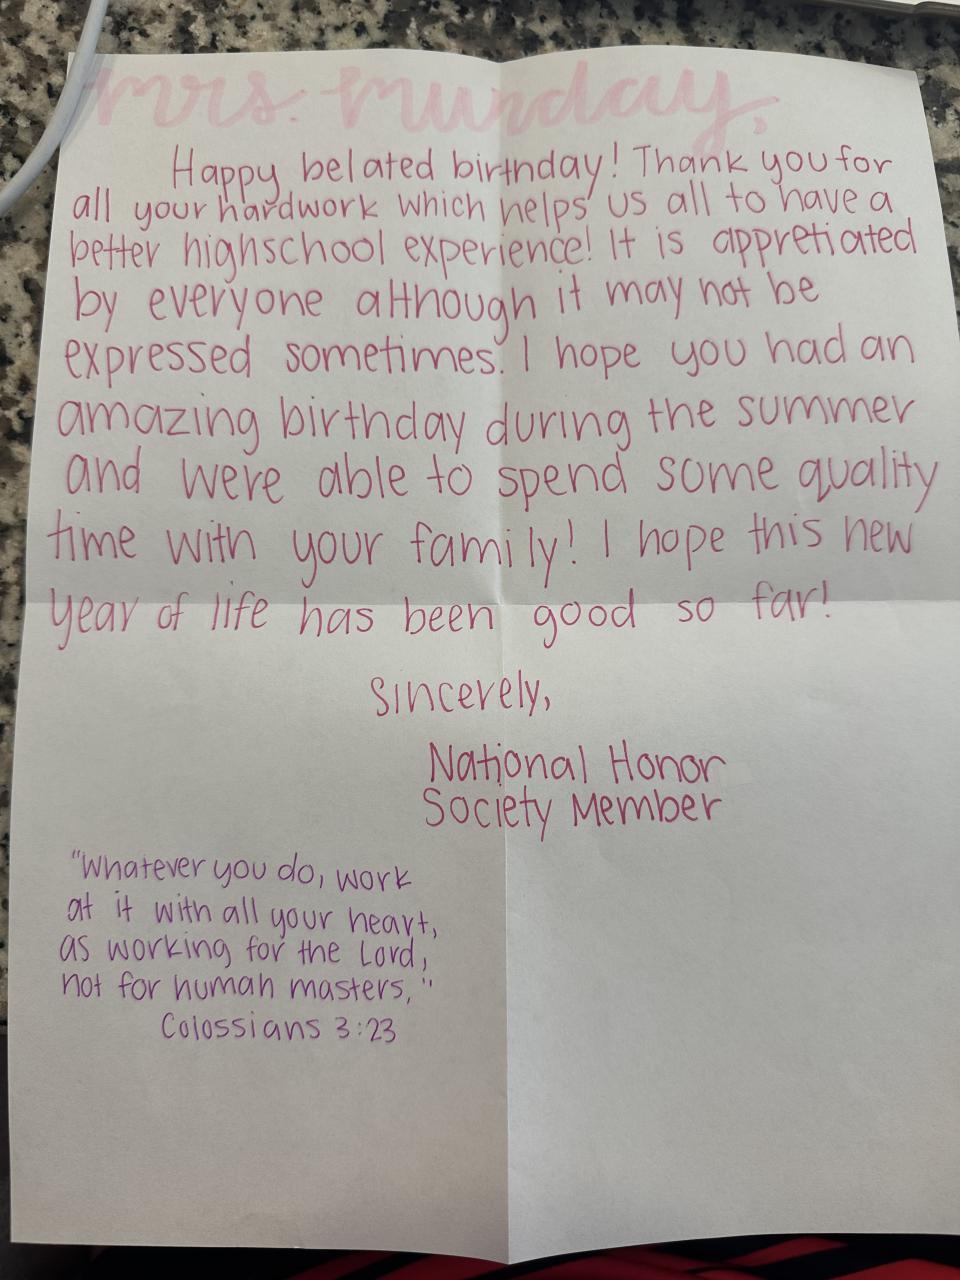 mrs. Munday,
Happy belated birthday! Thank you for
all your hardwork which helps us all to have a
better highschool experience! It is appretiated
by everyone although it may not be
expressed sometimes. I hope you had an
amazing birthday during the summer
and were able to spend some quality
time with your family! I hope this new
year of life has been good so far!
Sincerely,
National Honor
Society Member
"Whatever you do, work
at it with all your heart,
as working for the Lord,
not for human masters,"
Colossians 3:23